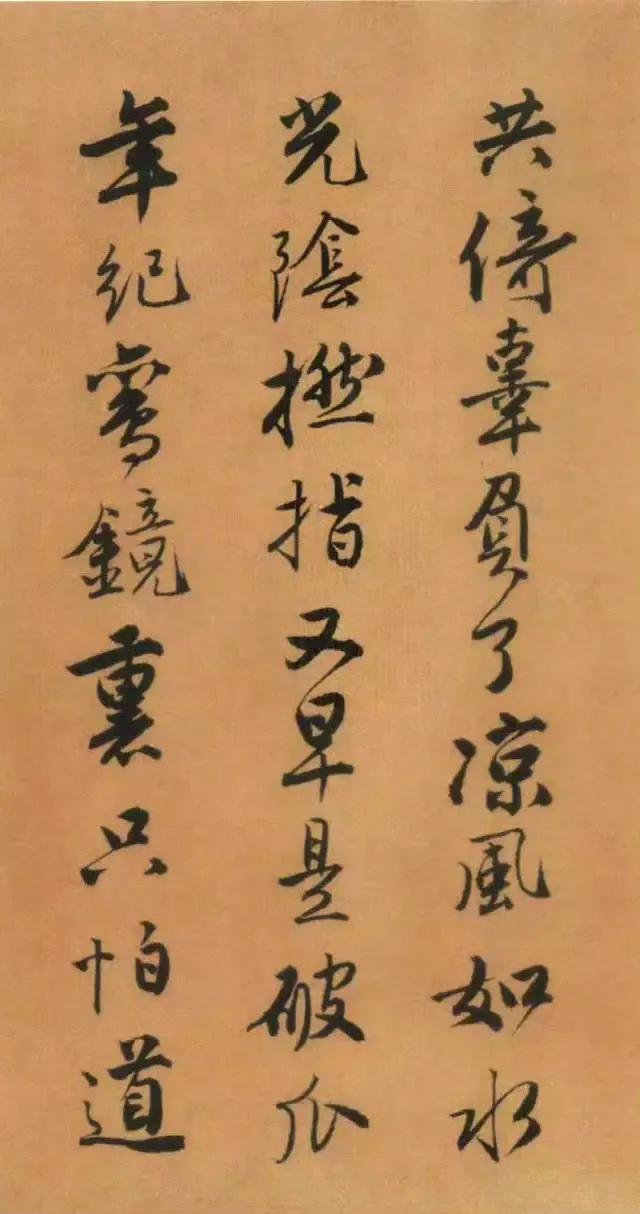 共倚辜負了凉風如水
光陰撚指又早是破瓜
年紀鸞鏡裏只怕道